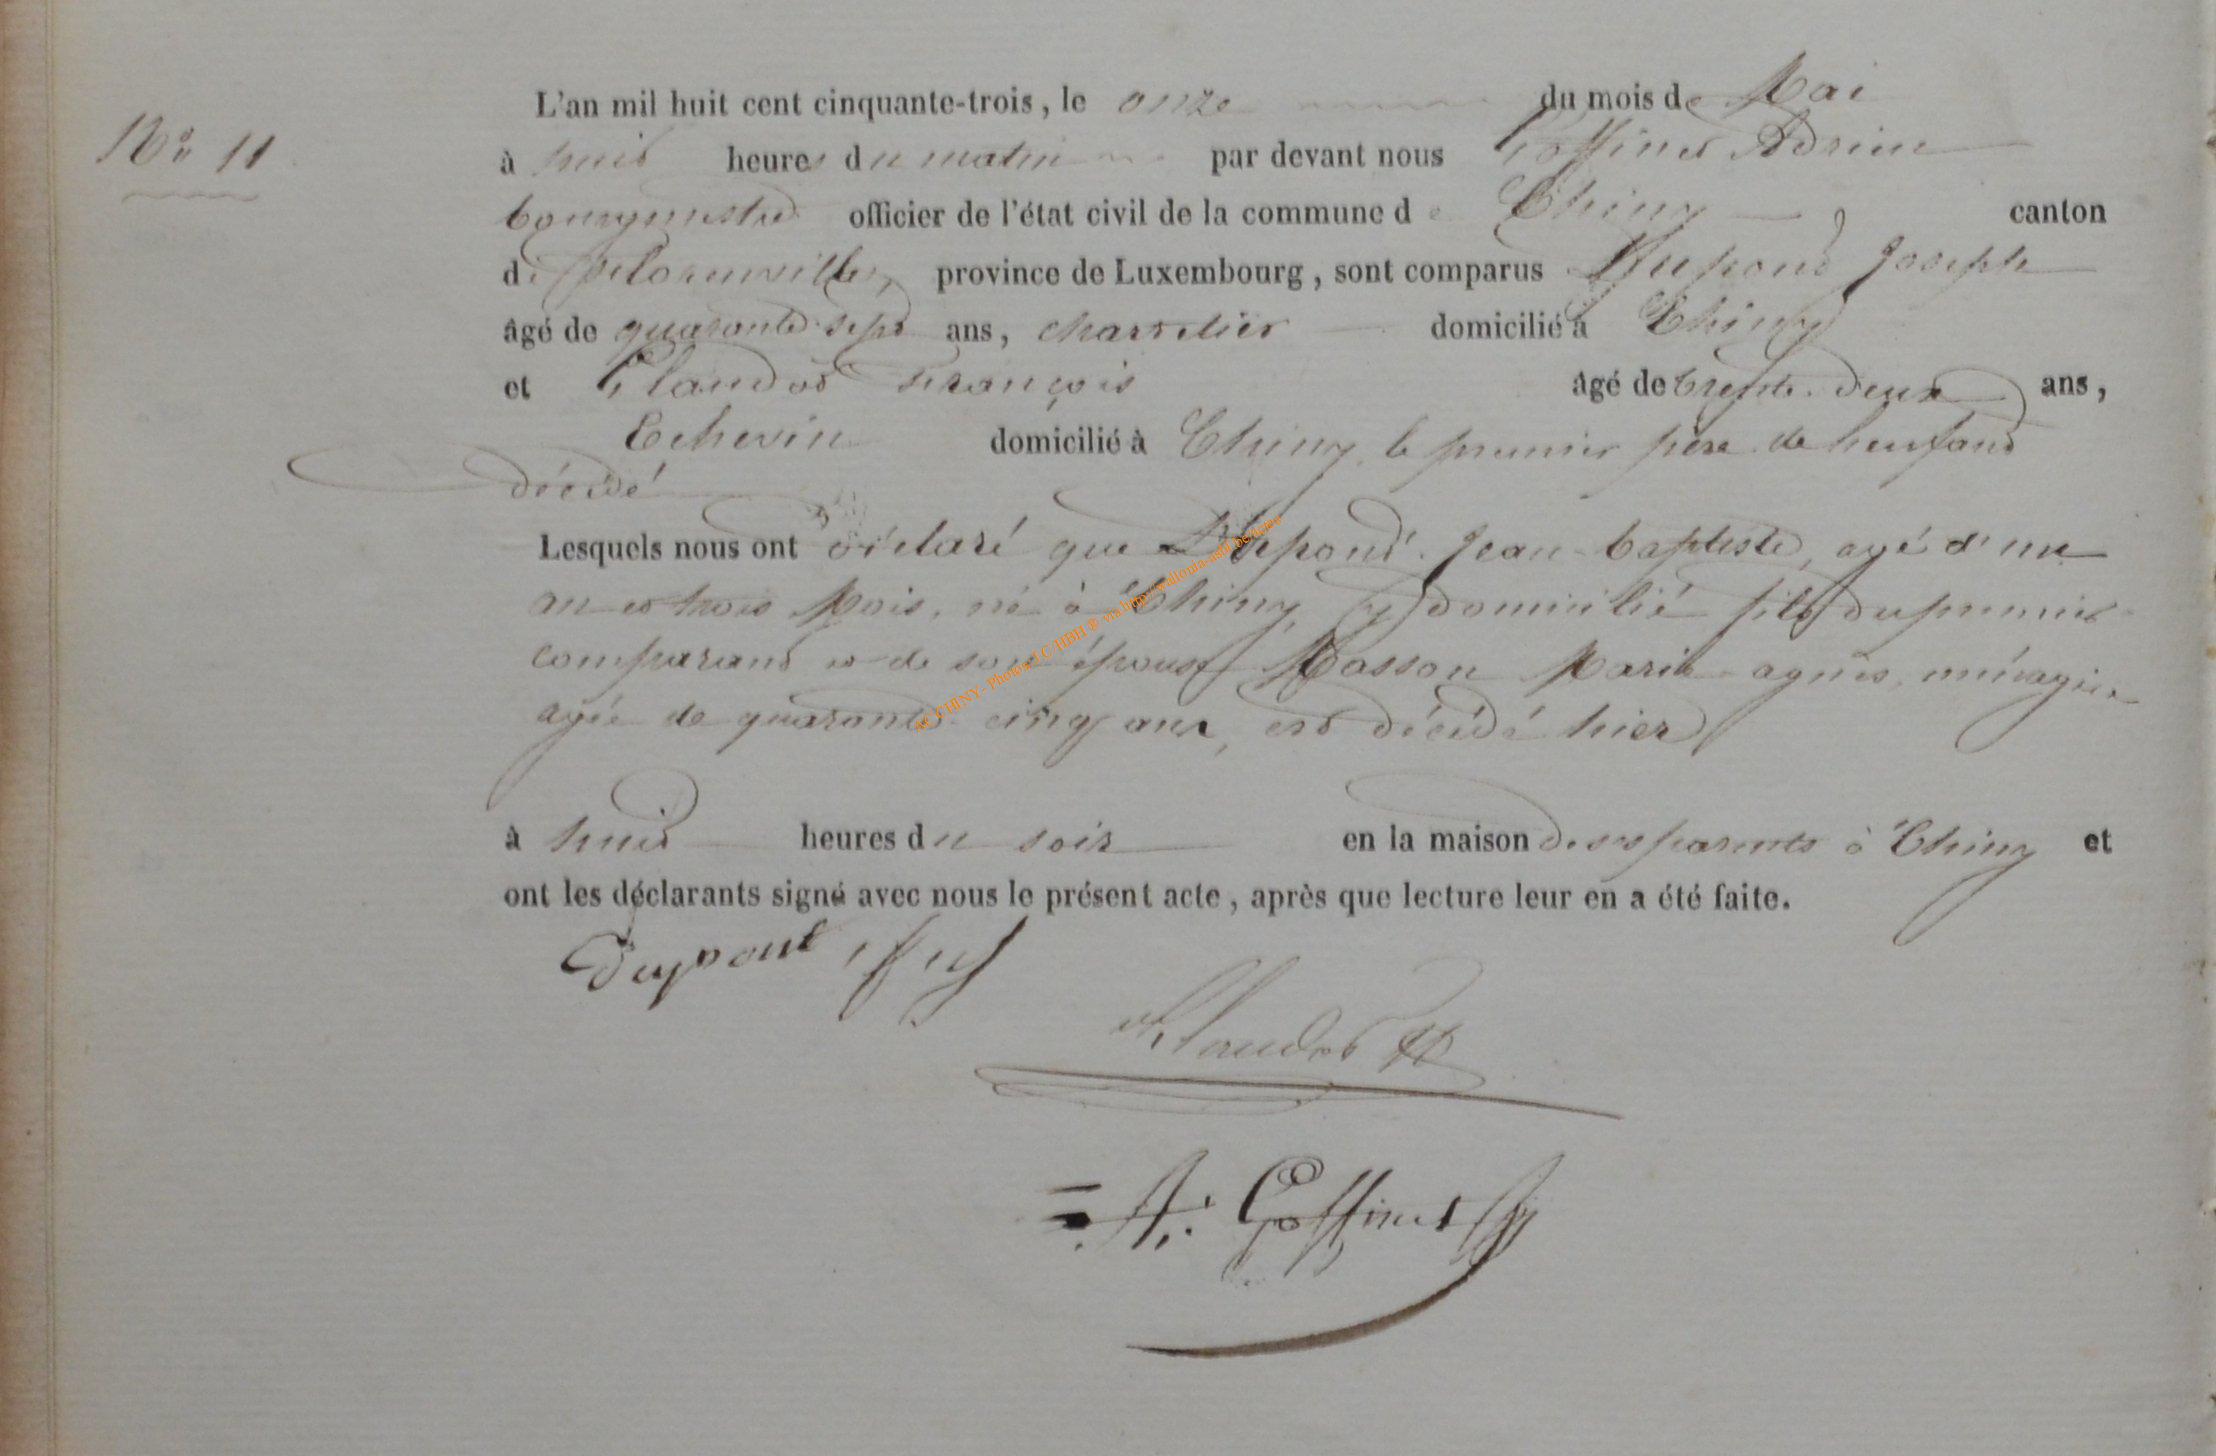 L'an mil huit cent cinquante-trois, le onze du mois de Mai
N° 11
à huit heures du matin par devant nous Goffinet Adrien
bourgmestre officier de l'état civil de la commune de Chiny canton
de florenville, province de Luxembourg, sont comparus Dupont Joseph
âgé de quarante sept ans, charretier domicilié à Chiny
et Claudot François âgé de trente-deux ans,
Echevin domicilié à Chiny, le premier père de l'enfant
décédé
Lesquels nous ont déclaré que Dupont Jean-baptiste, agé d'un
an et trois Mois, né à Chiny, y domicilié fils du premier
comparant et de son épouse Masson Marie-agnès, ménagère
agée de quarante-cinq ans, est décédé hier
à huit heures du soir en la maison de ses parents à Chiny et
ont les déclarants signé avec nous le présent acte, après que lecture leur en a été faite.
dupont
Claudot
A. Goffinet
AC CHINY - Photos J C HBH ® via http://wallonia-asbl.be/actes